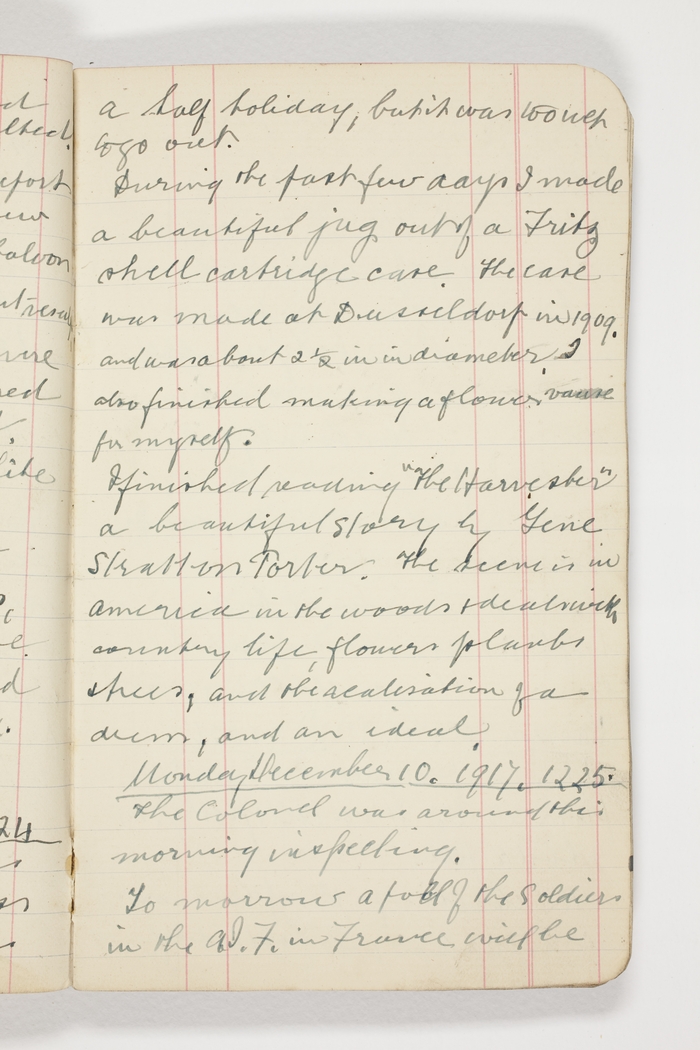 a half holiday, but it was too wet
to go out.
During the past few days I made
a beautiful jug out of a Fritz
shell cartridge case. The case
was made at Dusseldorf in 1909.
and was about 2 1/2 in in diameter. I
also finished making a flower vause
for myself.
I finished reading "The Harvester"
a beautiful story by Gene
Stratton Porter. The scene is in
America in the woods & deals with
country life, flowers plants
trees, and the realisation of a
dream, and an ideal
Monday December 10. 1917. 1225.
The Colonel was around this
morning inspecting.
To morrow a poll of the soldiers
in the A.I.F. in France will be